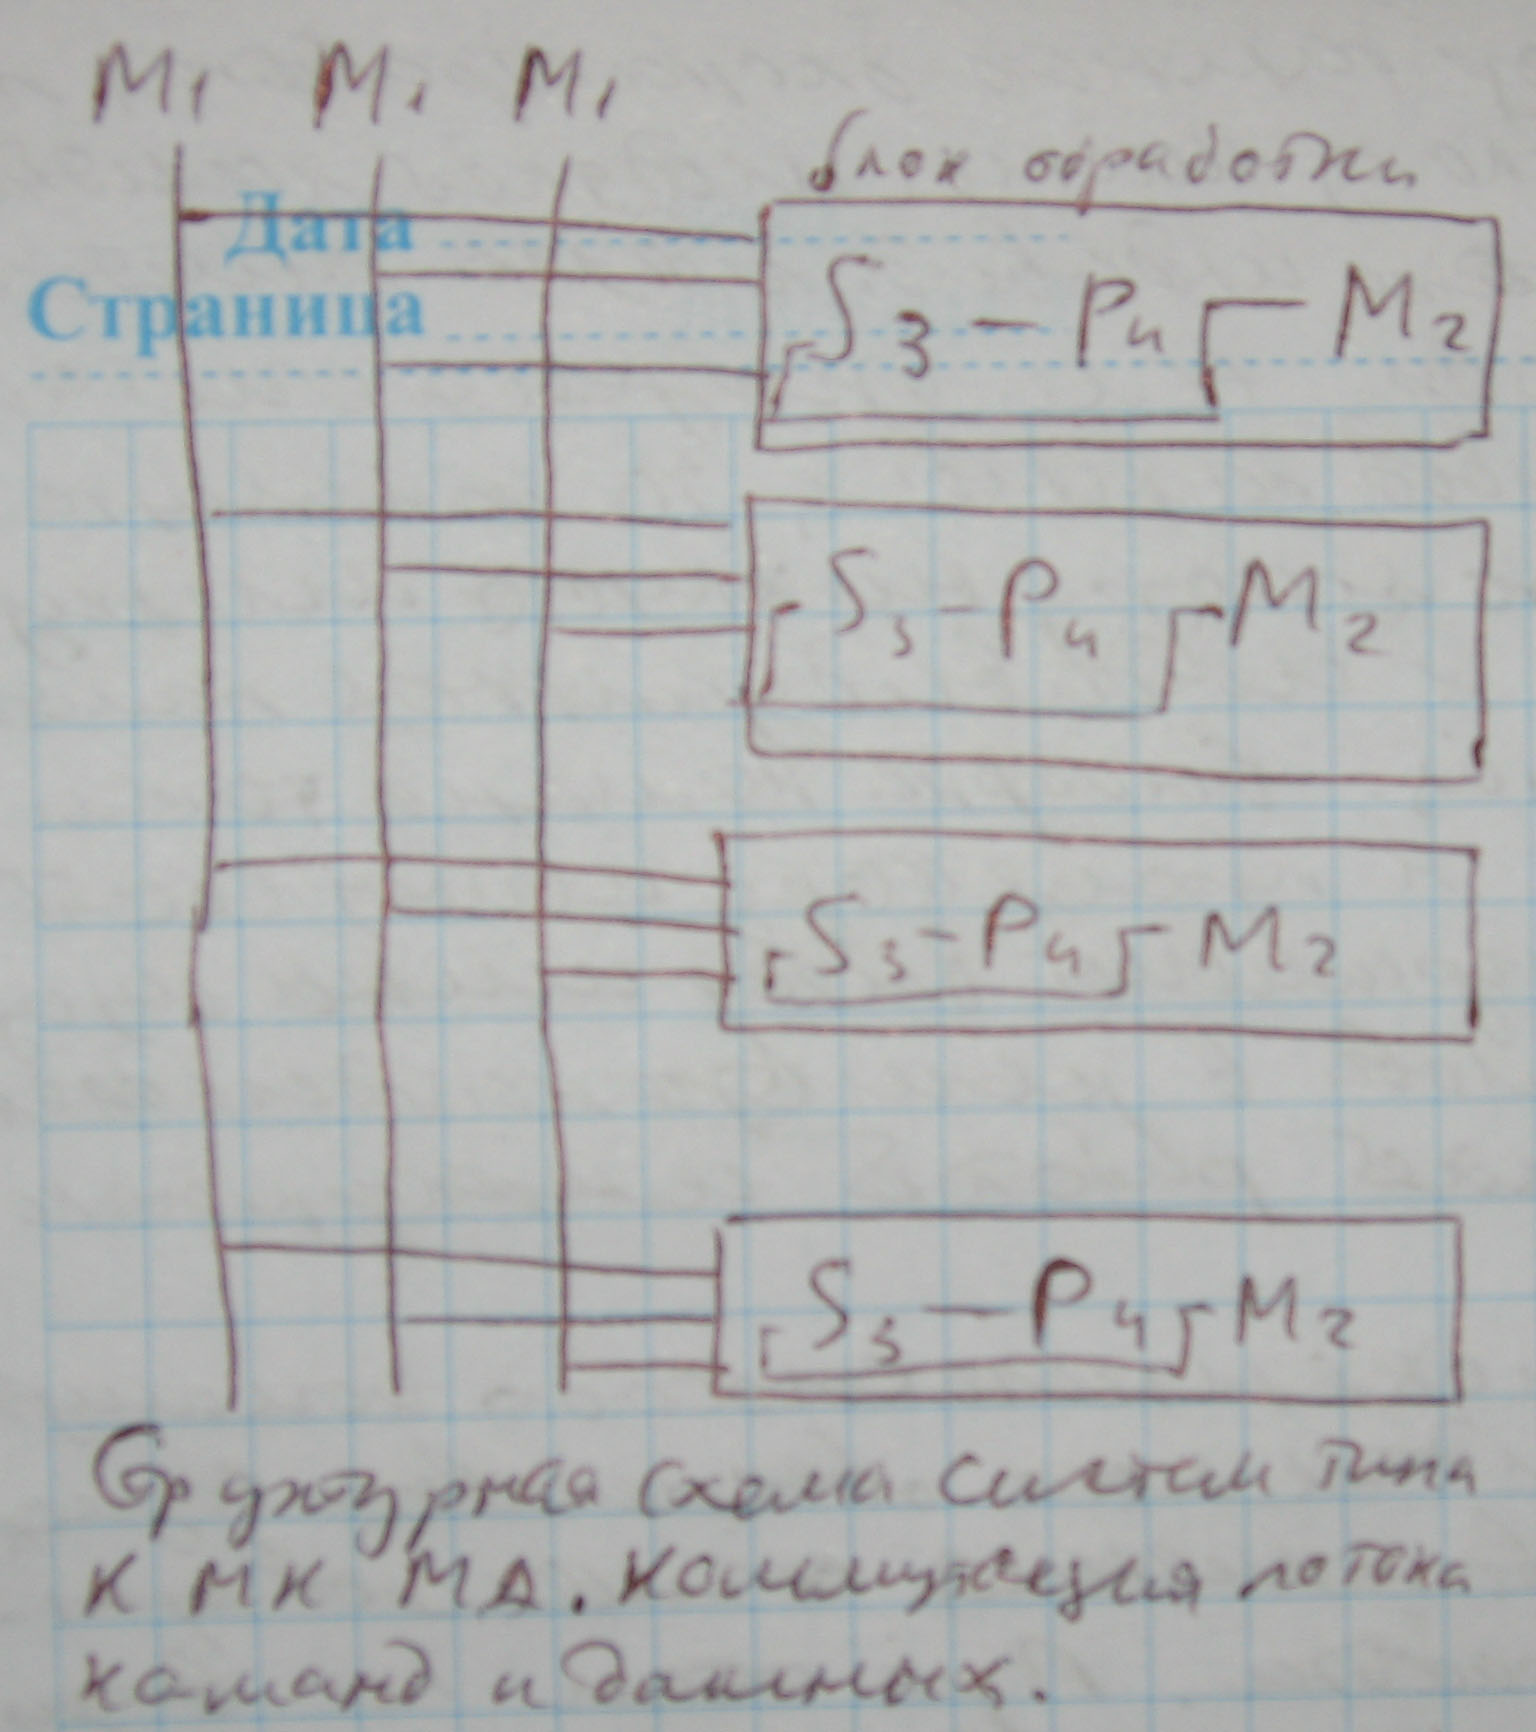 M1 M1 M1
блок обработки
Дата
Страница
S3 - P4 M2
S3 - P4 M2
S3 - P4 M2
S3 - P4 M2
Структурная схема систем типа
К МК МД. Коммутация потока
команд и данных.